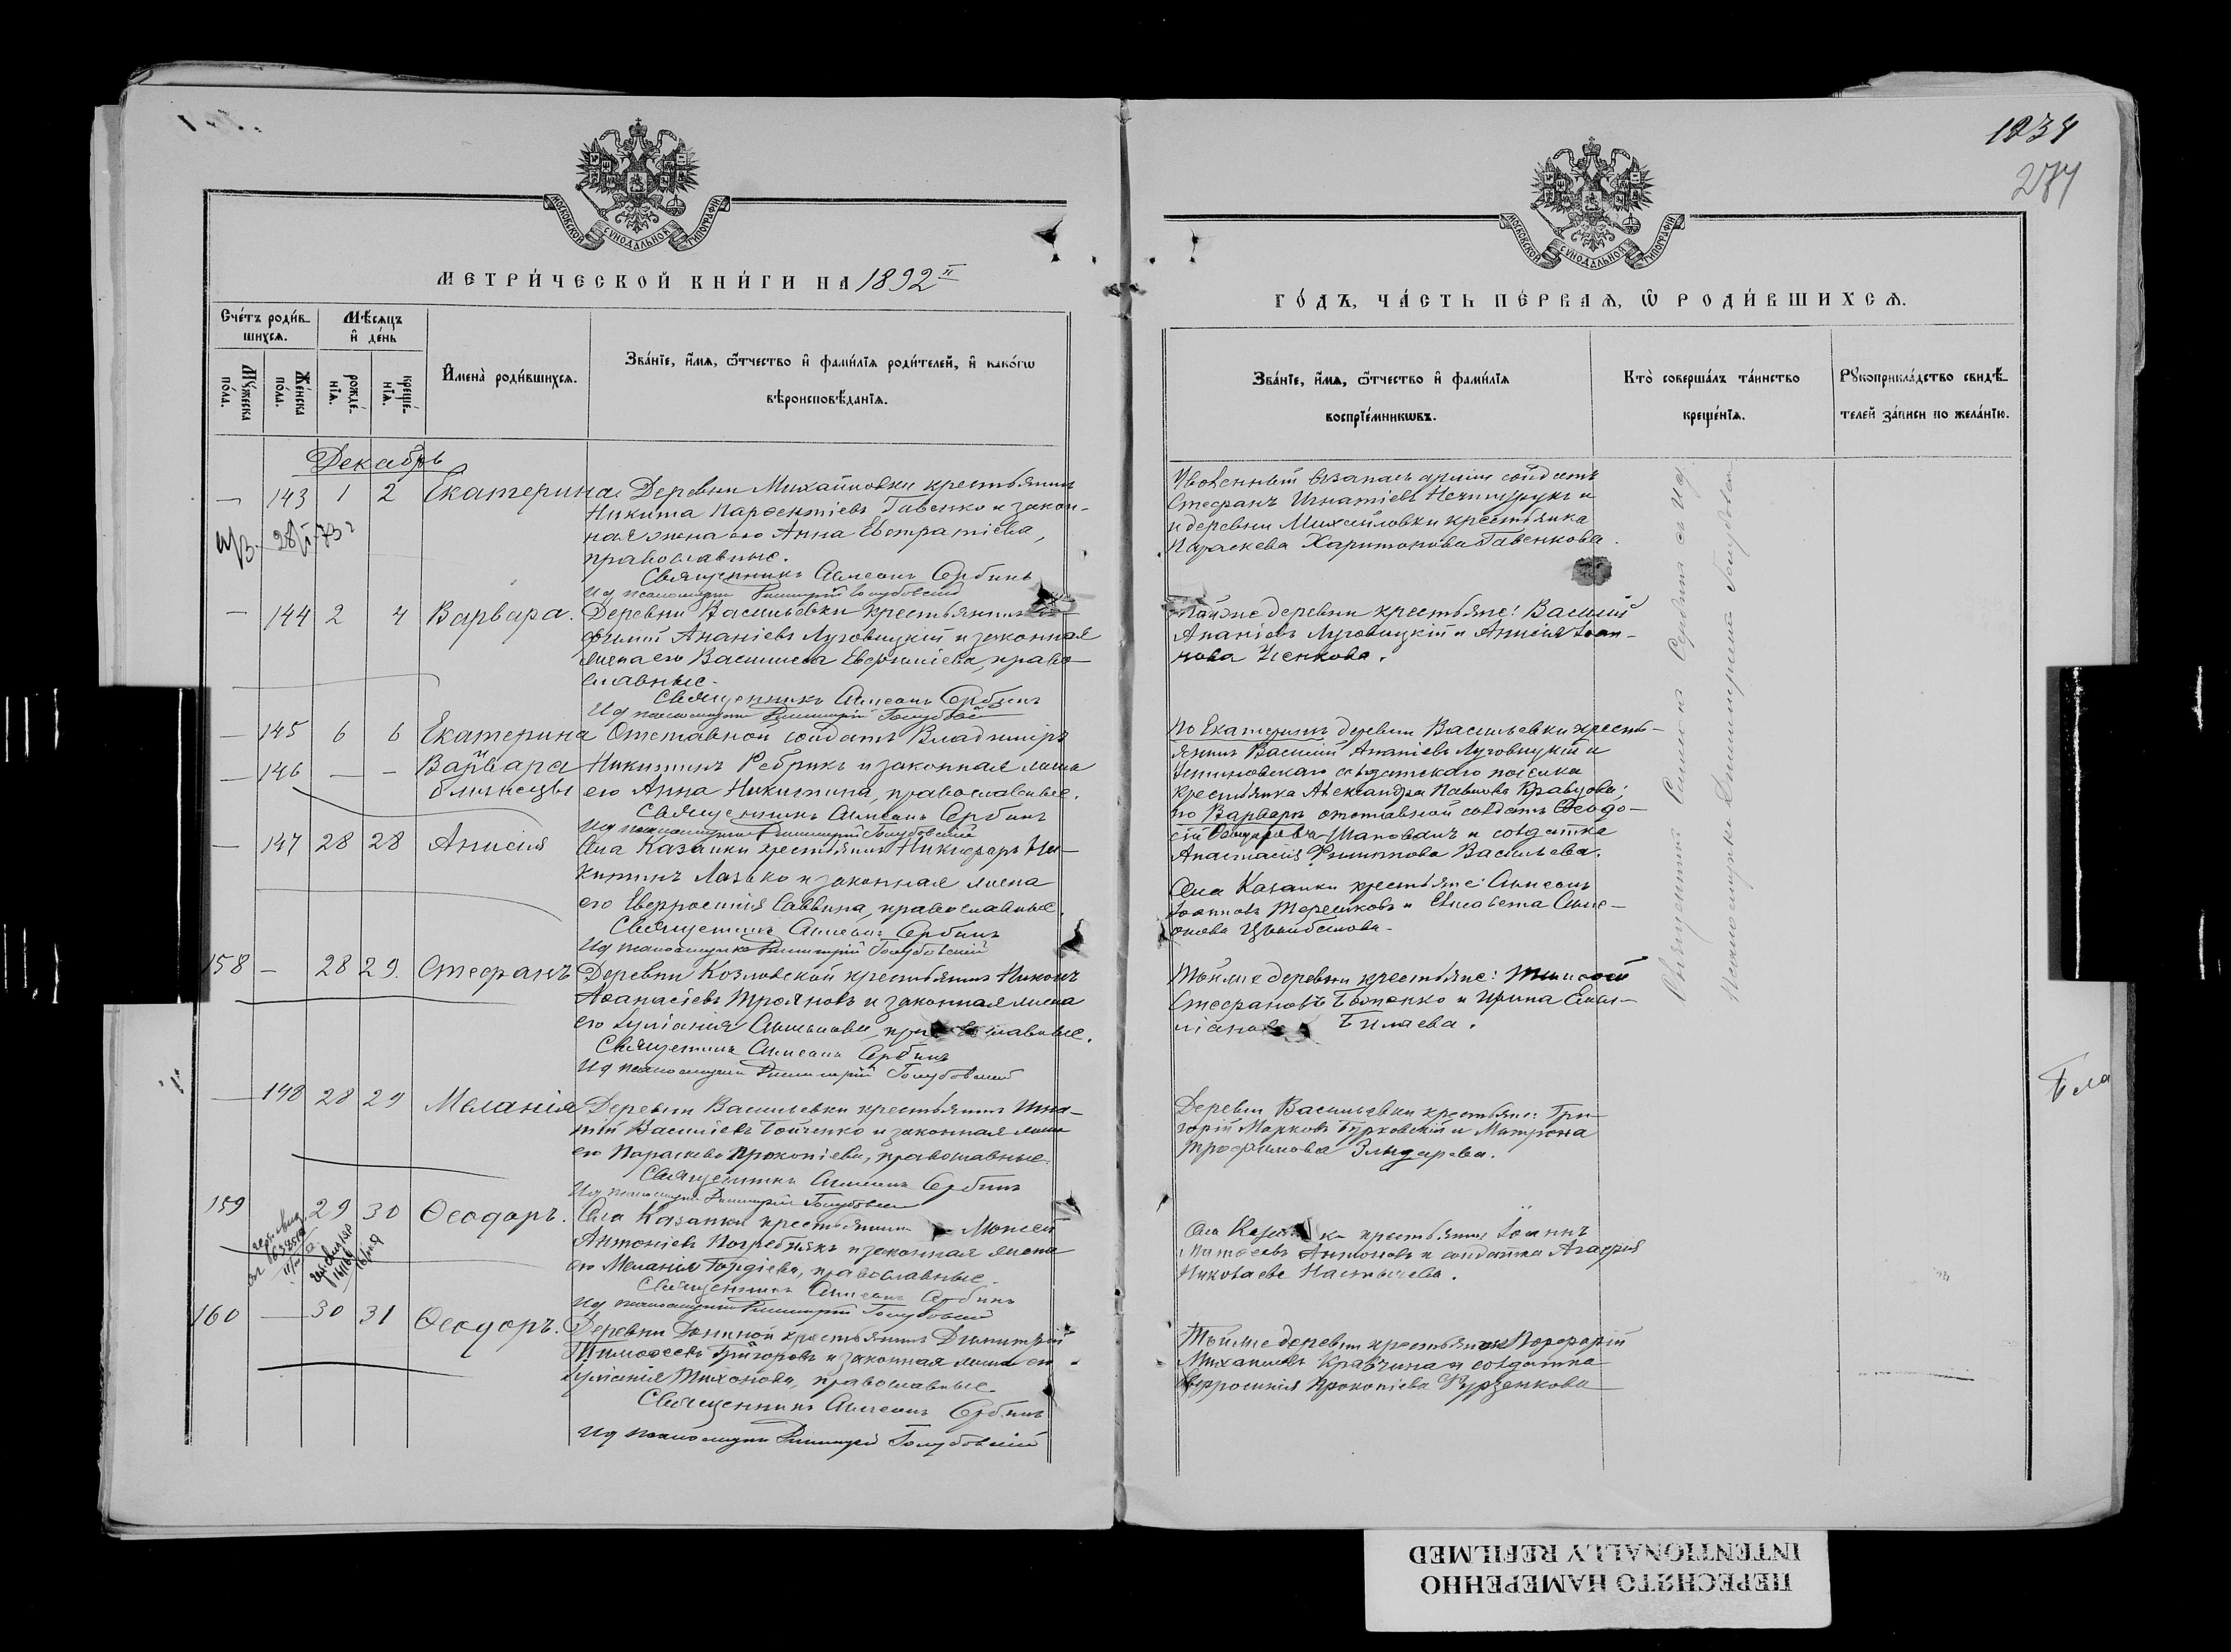 МОСКОВСКОЙ СѴНОДАЛЬНОЙ ТИПОГРАФІИ
МЕТРИ́ЧЕСКОЙ КНИ́ГИ НА 1892
Сче́тъ роди́вшихсѧ.
Мѣ́сѧцъ и҆ де́нь
Мꙋ́жеска по́ла.
Же́нска по́ла.
рожде́нїѧ.
креще́нїѧ.
И҆мена̀ роди́вшихсѧ.
Зва́нїе, и҆́мѧ, ѻ҆́тчество и҆ фами́лїѧ роди́телей, и҆ како́гѡ
вѣроисповѣ́данїѧ.
Декабрь
— 143 1 2 Екатерина Деревни Михайловки крестьянинъ
Никита Парѳентіевъ Гавенко и закон-
ная жена его Анна Евстратіева,
православные.
Священникъ Симеонъ Сербинъ
Ид псаломщика Димитрій Голубовскій
— 144 2 4 Варвара. Деревни Васильевки крестьянинъ
Ананіевъ Луговицкій и законная
жена его Василиса, право-
славные.
Священникъ Симеонъ Сербинъ
Ид псаломщика Димитрій Голубовскій
— 145 6 6 Екатерина Отставной солдатъ Владиміръ
— 146 — — и Варвара Никитинъ Ребрикъ и законная жена
близнецы его Анна Никитина, православные.
Священникъ Симеонъ Сербинъ
Ид псаломщика Димитрій Голубовскій
— 147 28 28 Анисія Села Казанки крестьянинъ Никифоръ Ни-
китинъ Лазько и законная жена
его Евфросинія Саввина, православные.
Священникъ Симеонъ Сербинъ
Ид псаломщика Димитрій Голубовскій
158 — 28 29. Стефанъ Деревни Козловской крестьянинъ Никонъ
Аѳанасіевъ Трояновъ и законная жена
его Іуліанія, православные.
Священникъ Симеонъ Сербинъ
Ид псаломщика Димитрій Голубовскій
— 148 28 29 Меланія Деревни Васильевки крестьянинъ Игна-
тій Василіевъ Бойченко и законная жена
его Параскева Прокопіева, православные.
Священникъ Симеонъ Сербинъ
Ид псаломщика Димитрій Голубовскій
159 29 30 Ѳеодоръ. Села Казанки крестьянинъ Моисей
Антоніевъ Погребнякъ и законная жена
его Меланія Гордіева, православные.
Священникъ Симеонъ Сербинъ
Ид псаломщика Димитрій Голубовскій
160 — 30 31 Ѳеодоръ. Деревни крестьянинъ Димитрій
Тимоѳеевъ Григоровъ и законная жена его
Іуліанія Тихонова, православные.
Священникъ Симеонъ Сербинъ
Ид псаломщика Димитрій Голубовскій
1234
284
МОСКОВСКОЙ СѴНОДАЛЬНОЙ ТИПОГРАФІИ
ГО́ДЪ, ЧА́СТЬ ПЕ́РВАѦ, Ѡ҆ РОДИ́ВШИХСѦ.
Зва́нїе, и҆́мѧ, ѻ҆́тчество и҆ фами́лїѧ
воспрїе́мникѡвъ.
Кто̀ соверша́лъ та́инство
креще́нїѧ.
Рꙋкоприкла́дство свидѣ́-
телей за́писи по жела́нїю.
Уволенный въ запасъ арміи солдатъ
Стефанъ Игнатіевъ и
деревни Михайловки крестьянка
Параскева Харитонова Гавенкова.
Тойже деревни крестьяне: Василій
Ананіевъ Луговицкій и Анисія Іоан-
нова
по Екатеринѣ деревни Васильевки кресть-
янинъ Василій Ананіевъ Луговицкій и
солдатскаго поселка
крестьянка Александра Павлова Кравцова;
по Варварѣ отставной солдатъ Ѳеодо-
сій Шаповалъ и солдатка
Анастасія Филиппова Васильева.
Села Казанки крестьяне: Симеонъ
Іоанновъ Терешковъ и Елисавета Симе-
онова
Тойже деревни крестьяне:
Стефановъ и Ирина Емил-
ліанова Биляева.
Деревни Васильевки крестьяне: Гри-
горій Марковъ Бурковскій и Матрона
Трофимова
Села Казанки крестьянинъ Іоаннъ
Матѳеевъ Антоновъ и солдатка Агафія
Николаева
Тойже деревни крестьянинъ Порфирій
Михаиловъ Кравчина и солдатка
Евфросинія Прокопіева Фурзенкова
Священникъ Симеонъ Сербинъ и Ид
Псаломщика Димитрій Голубовскій
ПЕРЕСНЯТО НАМЕРЕННО
INTENTIONALLY REFILMED